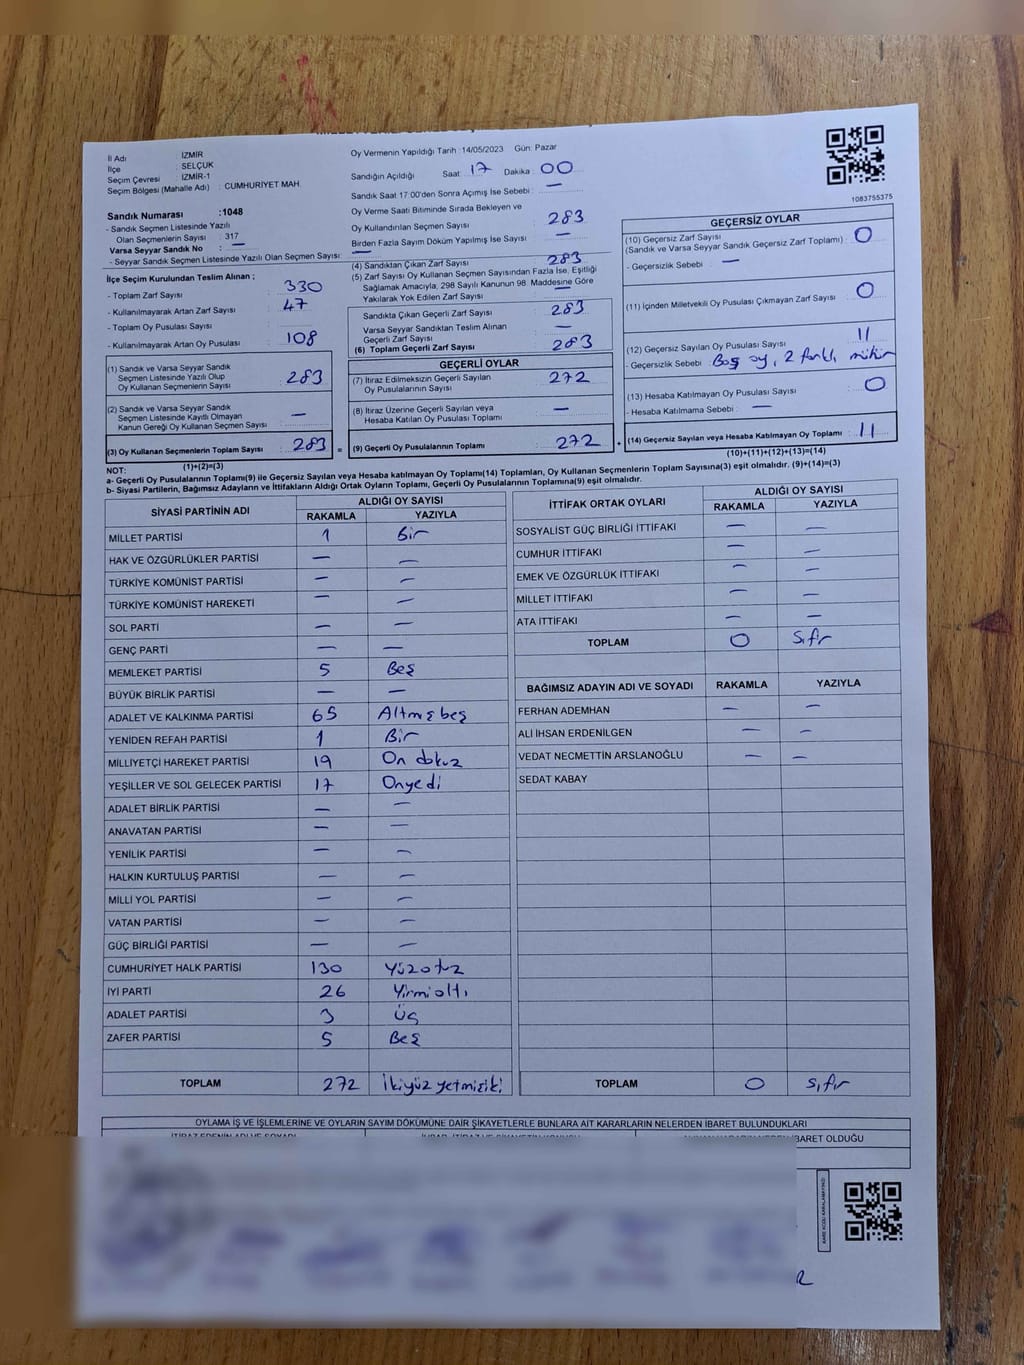 İl Adı : İZMİR
İlçe : SELÇUK
Seçim Çevresi : İZMİR-1
Seçim Bölgesi (Mahalle Adı) : CUMHURİYET MAH.
Sandık Numarası :1048
- Sandık Seçmen Listesinde Yazılı
Olan Seçmenlerin Sayısı : 317
Varsa Seyyar Sandık No : —
- Seyyar Sandık Seçmen Listesinde Yazılı Olan Seçmen Sayısı: —
İlçe Seçim Kurulundan Teslim Alınan ;
- Toplam Zarf Sayısı : 330
- Kullanılmayarak Artan Zarf Sayısı : 47
- Toplam Oy Pusulası Sayısı :
- Kullanılmayarak Artan Oy Pusulası : 108
(1) Sandık ve Varsa Seyyar Sandık
Seçmen Listesinde Yazılı Olup
Oy Kullanan Seçmenlerin Sayısı : 283
(2) Sandık ve Varsa Seyyar Sandık
Seçmen Listesinde Kayıtlı Olmayan
Kanun Gereği Oy Kullanan Seçmen Sayısı : —
(3) Oy Kullanan Seçmenlerin Toplam Sayısı : 283 =
(1)+(2)=(3)
Oy Vermenin Yapıldığı Tarih :14/05/2023 Gün: Pazar
Sandığın Açıldığı Saat : 17 Dakika : 00
Sandık Saat 17:00'den Sonra Açımış İse Sebebi : —
Oy Verme Saati Bitiminde Sırada Bekleyen ve
Oy Kullandırılan Seçmen Sayısı : 283
Birden Fazla Sayım Döküm Yapılmış İse Sayısı : —
(4) Sandıktan Çıkan Zarf Sayısı : 283
(5) Zarf Sayısı Oy Kullanan Seçmen Sayısından Fazla İse, Eşitliği
Sağlamak Amacıyla, 298 Sayılı Kanunun 98. Maddesine Göre
Yakılarak Yok Edilen Zarf Sayısı : —
Sandıkta Çıkan Geçerli Zarf Sayısı : 283
Varsa Seyyar Sandıktan Teslim Alınan
Geçerli Zarf Sayısı : —
(6) Toplam Geçerli Zarf Sayısı : 283
GEÇERLİ OYLAR
(7) İtiraz Edilmeksizin Geçerli Sayılan
Oy Pusulalarının Sayısı : 272
(8) İtiraz Üzerine Geçerli Sayılan veya
Hesaba Katılan Oy Pusulası Toplamı : —
(9) Geçerli Oy Pusulalarının Toplamı : 272 +
1083755375
GEÇERSİZ OYLAR
(10) Geçersiz Zarf Sayısı
(Sandık ve Varsa Seyyar Sandık Geçersiz Zarf Toplamı) : 0
- Geçersizlik Sebebi : —
(11) İçinden Milletvekili Oy Pusulası Çıkmayan Zarf Sayısı : 0
(12) Geçersiz Sayılan Oy Pusulası Sayısı : 11
- Geçersizlik Sebebi : Boş oy, 2 farklı mühür
(13) Hesaba Katılmayan Oy Pusulası Sayısı : 0
- Hesaba Katılmama Sebebi : —
(14) Geçersiz Sayılan veya Hesaba Katılmayan Oy Toplamı : 11
(10)+(11)+(12)+(13)=(14)
NOT:
a- Geçerli Oy Pusulalarının Toplamı(9) ile Geçersiz Sayılan veya Hesaba katılmayan Oy Toplamı(14) Toplamları, Oy Kullanan Seçmenlerin Toplam Sayısına(3) eşit olmalıdır. (9)+(14)=(3)
b- Siyasi Partilerin, Bağımsız Adayların ve İttifakların Aldığı Ortak Oyların Toplamı, Geçerli Oy Pusulalarının Toplamına(9) eşit olmalıdır.
SİYASİ PARTİNİN ADI ALDIĞI OY SAYISI
RAKAMLA YAZIYLA
MİLLET PARTİSİ 1 Bir
HAK VE ÖZGÜRLÜKLER PARTİSİ — —
TÜRKİYE KOMÜNİST PARTİSİ — —
TÜRKİYE KOMÜNİST HAREKETİ — —
SOL PARTİ — —
GENÇ PARTİ — —
MEMLEKET PARTİSİ 5 Beş
BÜYÜK BİRLİK PARTİSİ — —
ADALET VE KALKINMA PARTİSİ 65 Altmışbeş
YENİDEN REFAH PARTİSİ 1 Bir
MİLLİYETÇİ HAREKET PARTİSİ 19 On dokuz
YEŞİLLER VE SOL GELECEK PARTİSİ 17 Onyedi
ADALET BİRLİK PARTİSİ — —
ANAVATAN PARTİSİ — —
YENİLİK PARTİSİ — —
HALKIN KURTULUŞ PARTİSİ — —
MİLLİ YOL PARTİSİ — —
VATAN PARTİSİ — —
GÜÇ BİRLİĞİ PARTİSİ — —
CUMHURİYET HALK PARTİSİ 130 Yüzotuz
İYİ PARTİ 26 Yirmialtı
ADALET PARTİSİ 3 Üç
ZAFER PARTİSİ 5 Beş
TOPLAM 272 İkiyüz yetmişiki
İTTİFAK ORTAK OYLARI ALDIĞI OY SAYISI
RAKAMLA YAZIYLA
SOSYALİST GÜÇ BİRLİĞİ İTTİFAKI — —
CUMHUR İTTİFAKI — —
EMEK VE ÖZGÜRLÜK İTTİFAKI — —
MİLLET İTTİFAKI — —
ATA İTTİFAKI — —
TOPLAM 0 Sıfır
BAĞIMSIZ ADAYIN ADI VE SOYADI RAKAMLA YAZIYLA
FERHAN ADEMHAN — —
ALİ İHSAN ERDENİLGEN — —
VEDAT NECMETTİN ARSLANOĞLU — —
SEDAT KABAY
TOPLAM 0 Sıfır
OYLAMA İŞ VE İŞLEMLERİNE VE OYLARIN SAYIM DÖKÜMÜNE DAİR ŞİKAYETLERLE BUNLARA AİT KARARLARIN NELERDEN İBARET BULUNDUKLARI
İBARET OLDUĞU